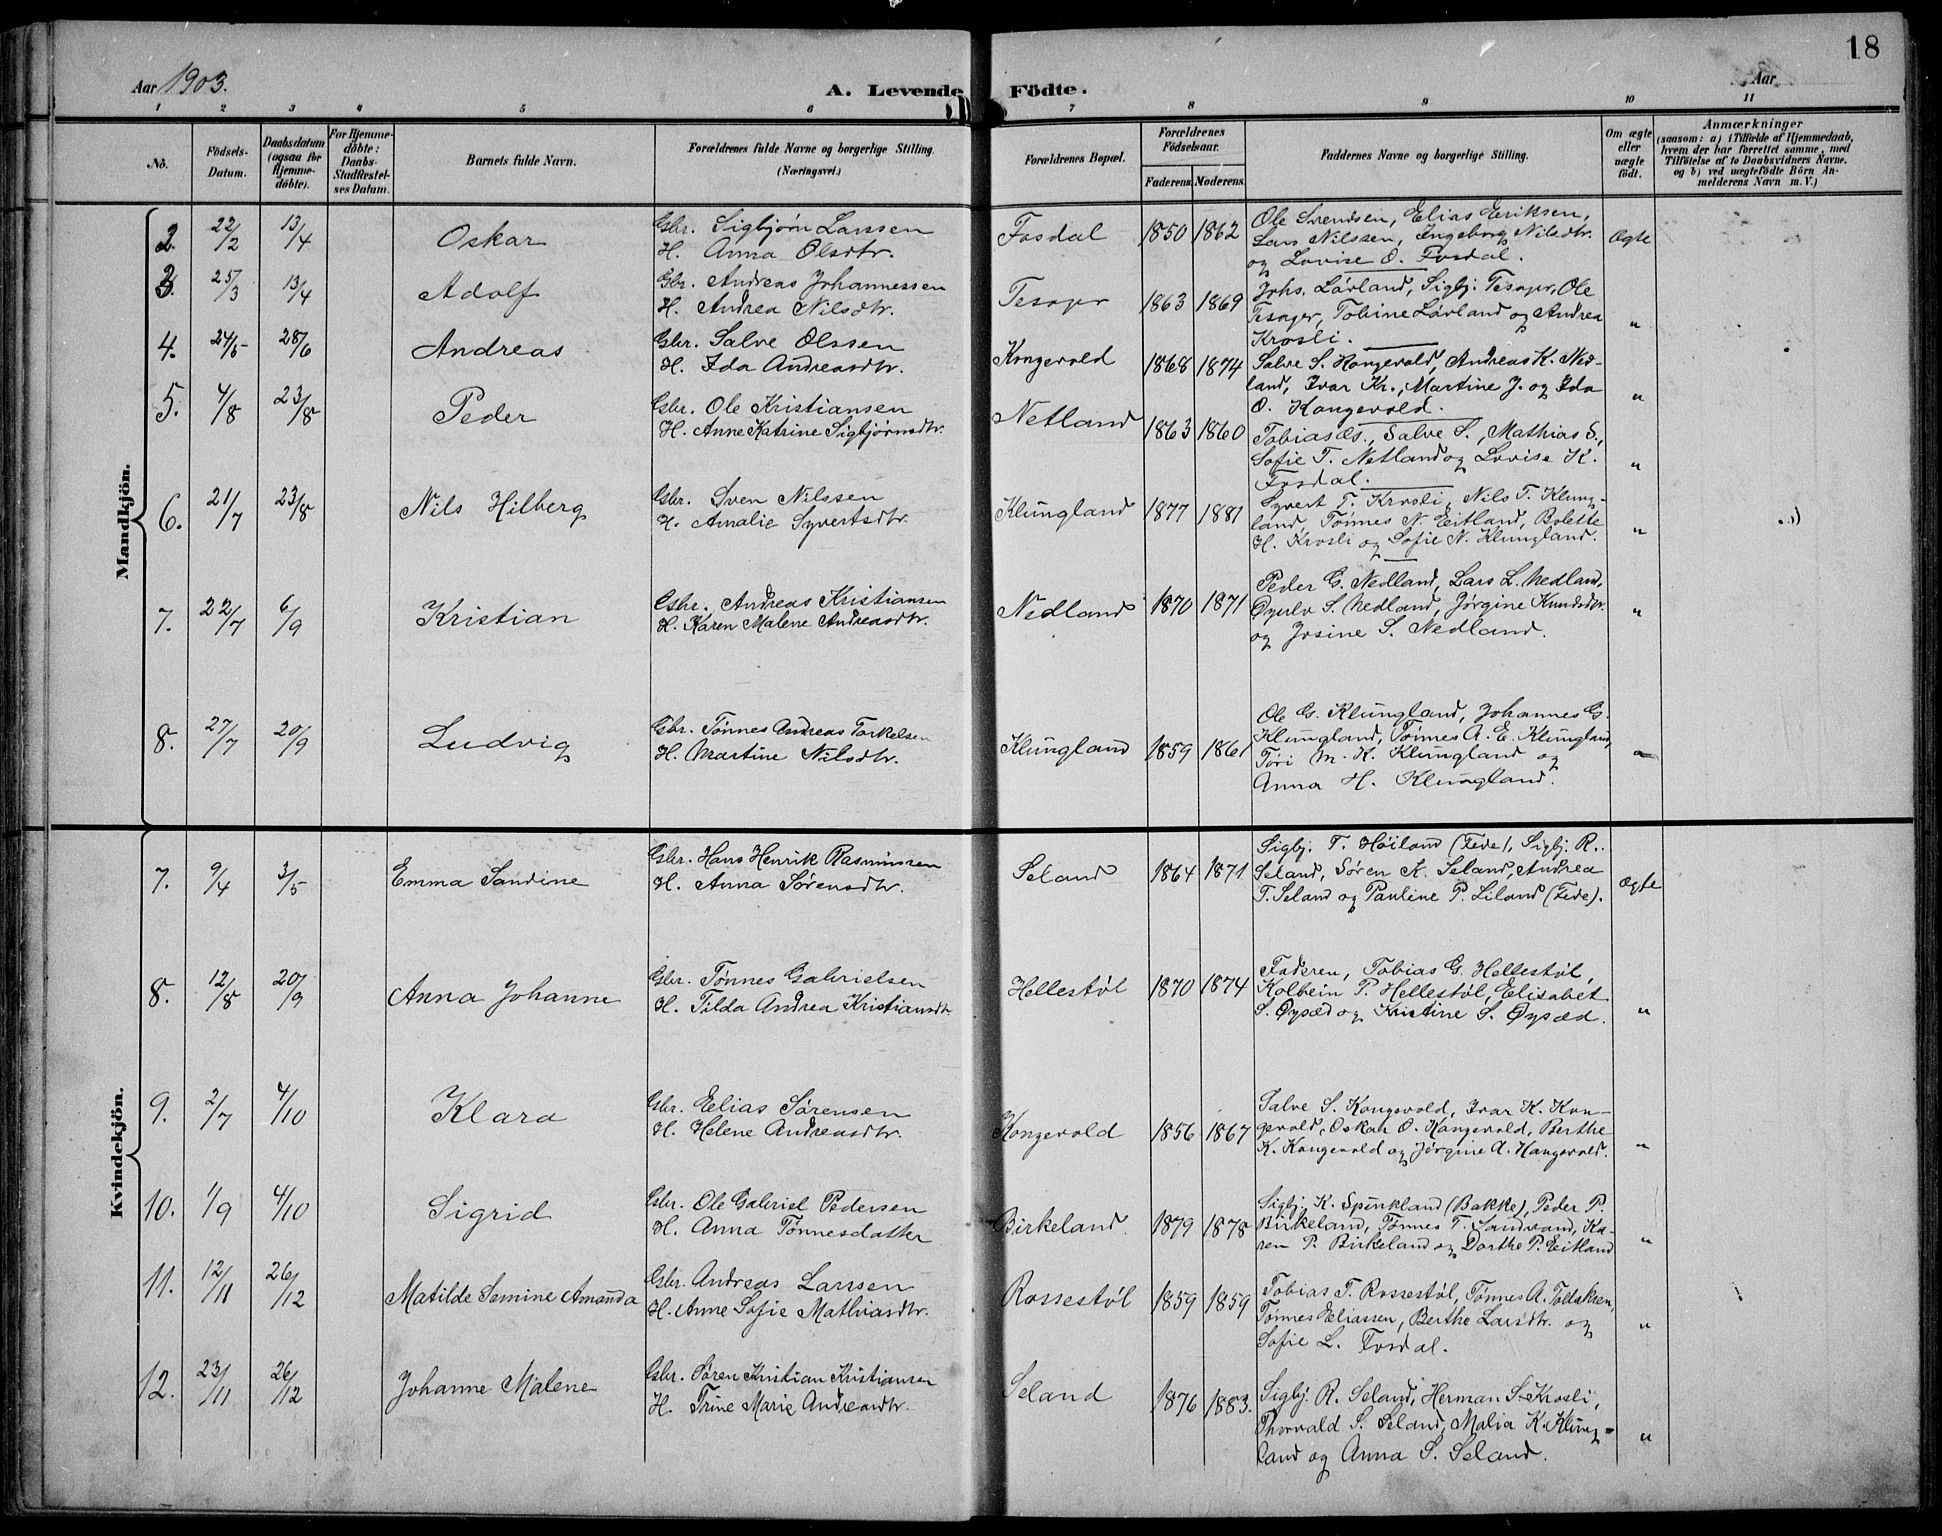 18
Aar 1903. A. Levende Födte. Aar
1 2 3 4 5 6 7 8 9 10 11
No. Födsels-Datum. Daabsdatum (ogsaa for Hjemme-döbte). For Hjemme-döbte: Daabs-Stadfæstel-ses Datum. Barnets fulde Navn. Forældrenes fulde Navne og borgerlige Stilling. (Næringsvei.) Forældrenes Bopæl. Forældrenes Födselsaar. Faderens. Moderens. Faddernes Navne og borgerlige Stilling. Om ægte eller uægte födt. Anmærkninger (saasom: a) i Tilfælde af Hjemmedaab, hvem der har forrettet samme, med Tilföielse af to Daabsvidners Navne, og b) ved uægtefödte Börn An-melderens Navn m. V.)
Mandkjön.
2. 22/2 13/4 Oskar Gbr. Sigbjørn Larssen
H. Anna Olsdtr. Fosdal 1850 1862 Ole Svendsen, Elias Eriksen,
Lars Nilssen, Ingeborg Nilsdtr.
og Lovise O. Fosdal. Ægte
3. 25/3 13/4 Adolf Gbr. Andreas Johannessen
H. Andrea Nilsdtr. Tesager 1863 1869 Johs. Lövland, Sigbj. Tesager, Ole
Tesager, Tobine Lövland og Andrea
Krosli. "
4. 24/5 28/6 Andreas Gbr. Salve Olssen
H. Ida Andreasdtr. Kongevold 1868 1874 Salve S. Kongevold, Andreas K. Ned-
land, Ivar Kr., Martine J. og Ida
O. Kongevold. "
5. 4/8 23/8 Peder Gbr. Ole Kristiansen
H. Anne Katrine Sigbjørnsdtr. Netland 1863 1860 Tobias Es., Salve S., Mathias S.,
Sofie T. Netland og Lovise K.
Fosdal. "
6. 21/7 23/8 Nils Hilberg Gbr. Sven Nilssen
H. Amalie Syvertsdtr. Klungland 1877 1881 Syvert T. Krosli, Nils T. Klung-
land, Tönnes N. Eitland, Bolette
H. Krosli og Sofie N. Klungland. "
7. 22/7 6/9 Kristian Gbr. Andreas Kristiansen
H. Karen Malene Andreasdtr. Nedland 1870 1871 Peder G. Nedland, Lars L. Nedland,
S. Nedland, Jørgine Knudsdtr.
og Josine S. Nedland. "
8. 27/7 20/9 Ludvig Gbr. Tønnes Andreas Torkelsen
H. Martine Nilsdtr. Klungland 1859 1861 Ole G. Klungland, Johannes G.
Klungland, Tönnes A. E. Klungland,
Töri M. K. Klungland og
Anna H. Klungland. "
Kvindekjön.
7. 9/4 3/5 Emma Sandine Gbr. Hans Henrik Rasmussen
H. Anna Sørensdtr. Seland 1864 1871 Sigbj. T. Höiland (Fede), Sigbj. R.
Seland, Søren K. Seland, Andrea
T. Seland og Pauline P. Liland (Fede). Ægte
8. 12/8 20/9 Anna Johanne Gbr. Tønnes Gabrielsen
H. Tilda Andrea Kristiansdtr Hellestöl 1870 1874 Faderen, Tobias G. Hellestöl,
Kolbein P. Hellestöl, Elisabét
S. Øysæd og Kristine S. Øysæd. "
9. 2/7 4/10 Klara Gbr. Elias Sørensen
H. Helene Andreasdtr. Kongevold 1856 1867 Salve S. Kongevold, Ivar K. Kon-
gevold, Oskar O. Kongevold, Berthe
K. Kongevold og Jørgine A. Kongevold. "
10. 1/9 4/10 Sigrid Gbr. Ole Gabriel Pedersen
H. Anna Tønnesdatter Birkeland. 1879 1878 Sigbj. K. Spinkland (Bakke), Peder P.
Birkeland, Tønnes T. Sandvand, Ka-
ren P. Birkeland og Dorthe P. Eitland "
11. 12/11 26/12 Matilde Semine Amanda Gbr. Andreas Larssen
H. Anne Sofie Mathiasdtr. Rossestöl 1859 1859 Tobias T. Rossestöl, Tönnes A. Tollaksen,
Tønnes Eliassen, Berthe Larsdtr. og
Sofie L. Fosdal. "
12. 23/11 26/12 Johanne Malene Gbr. Søren Kristian Kristiansen
H. Trine Marie Andreasdtr. Seland 1876 1883. Sigbj. R. Seland, Herman S. Krosli,
Thorvald S. Seland, Malia K. Klung-
land og Anna S. Seland. "